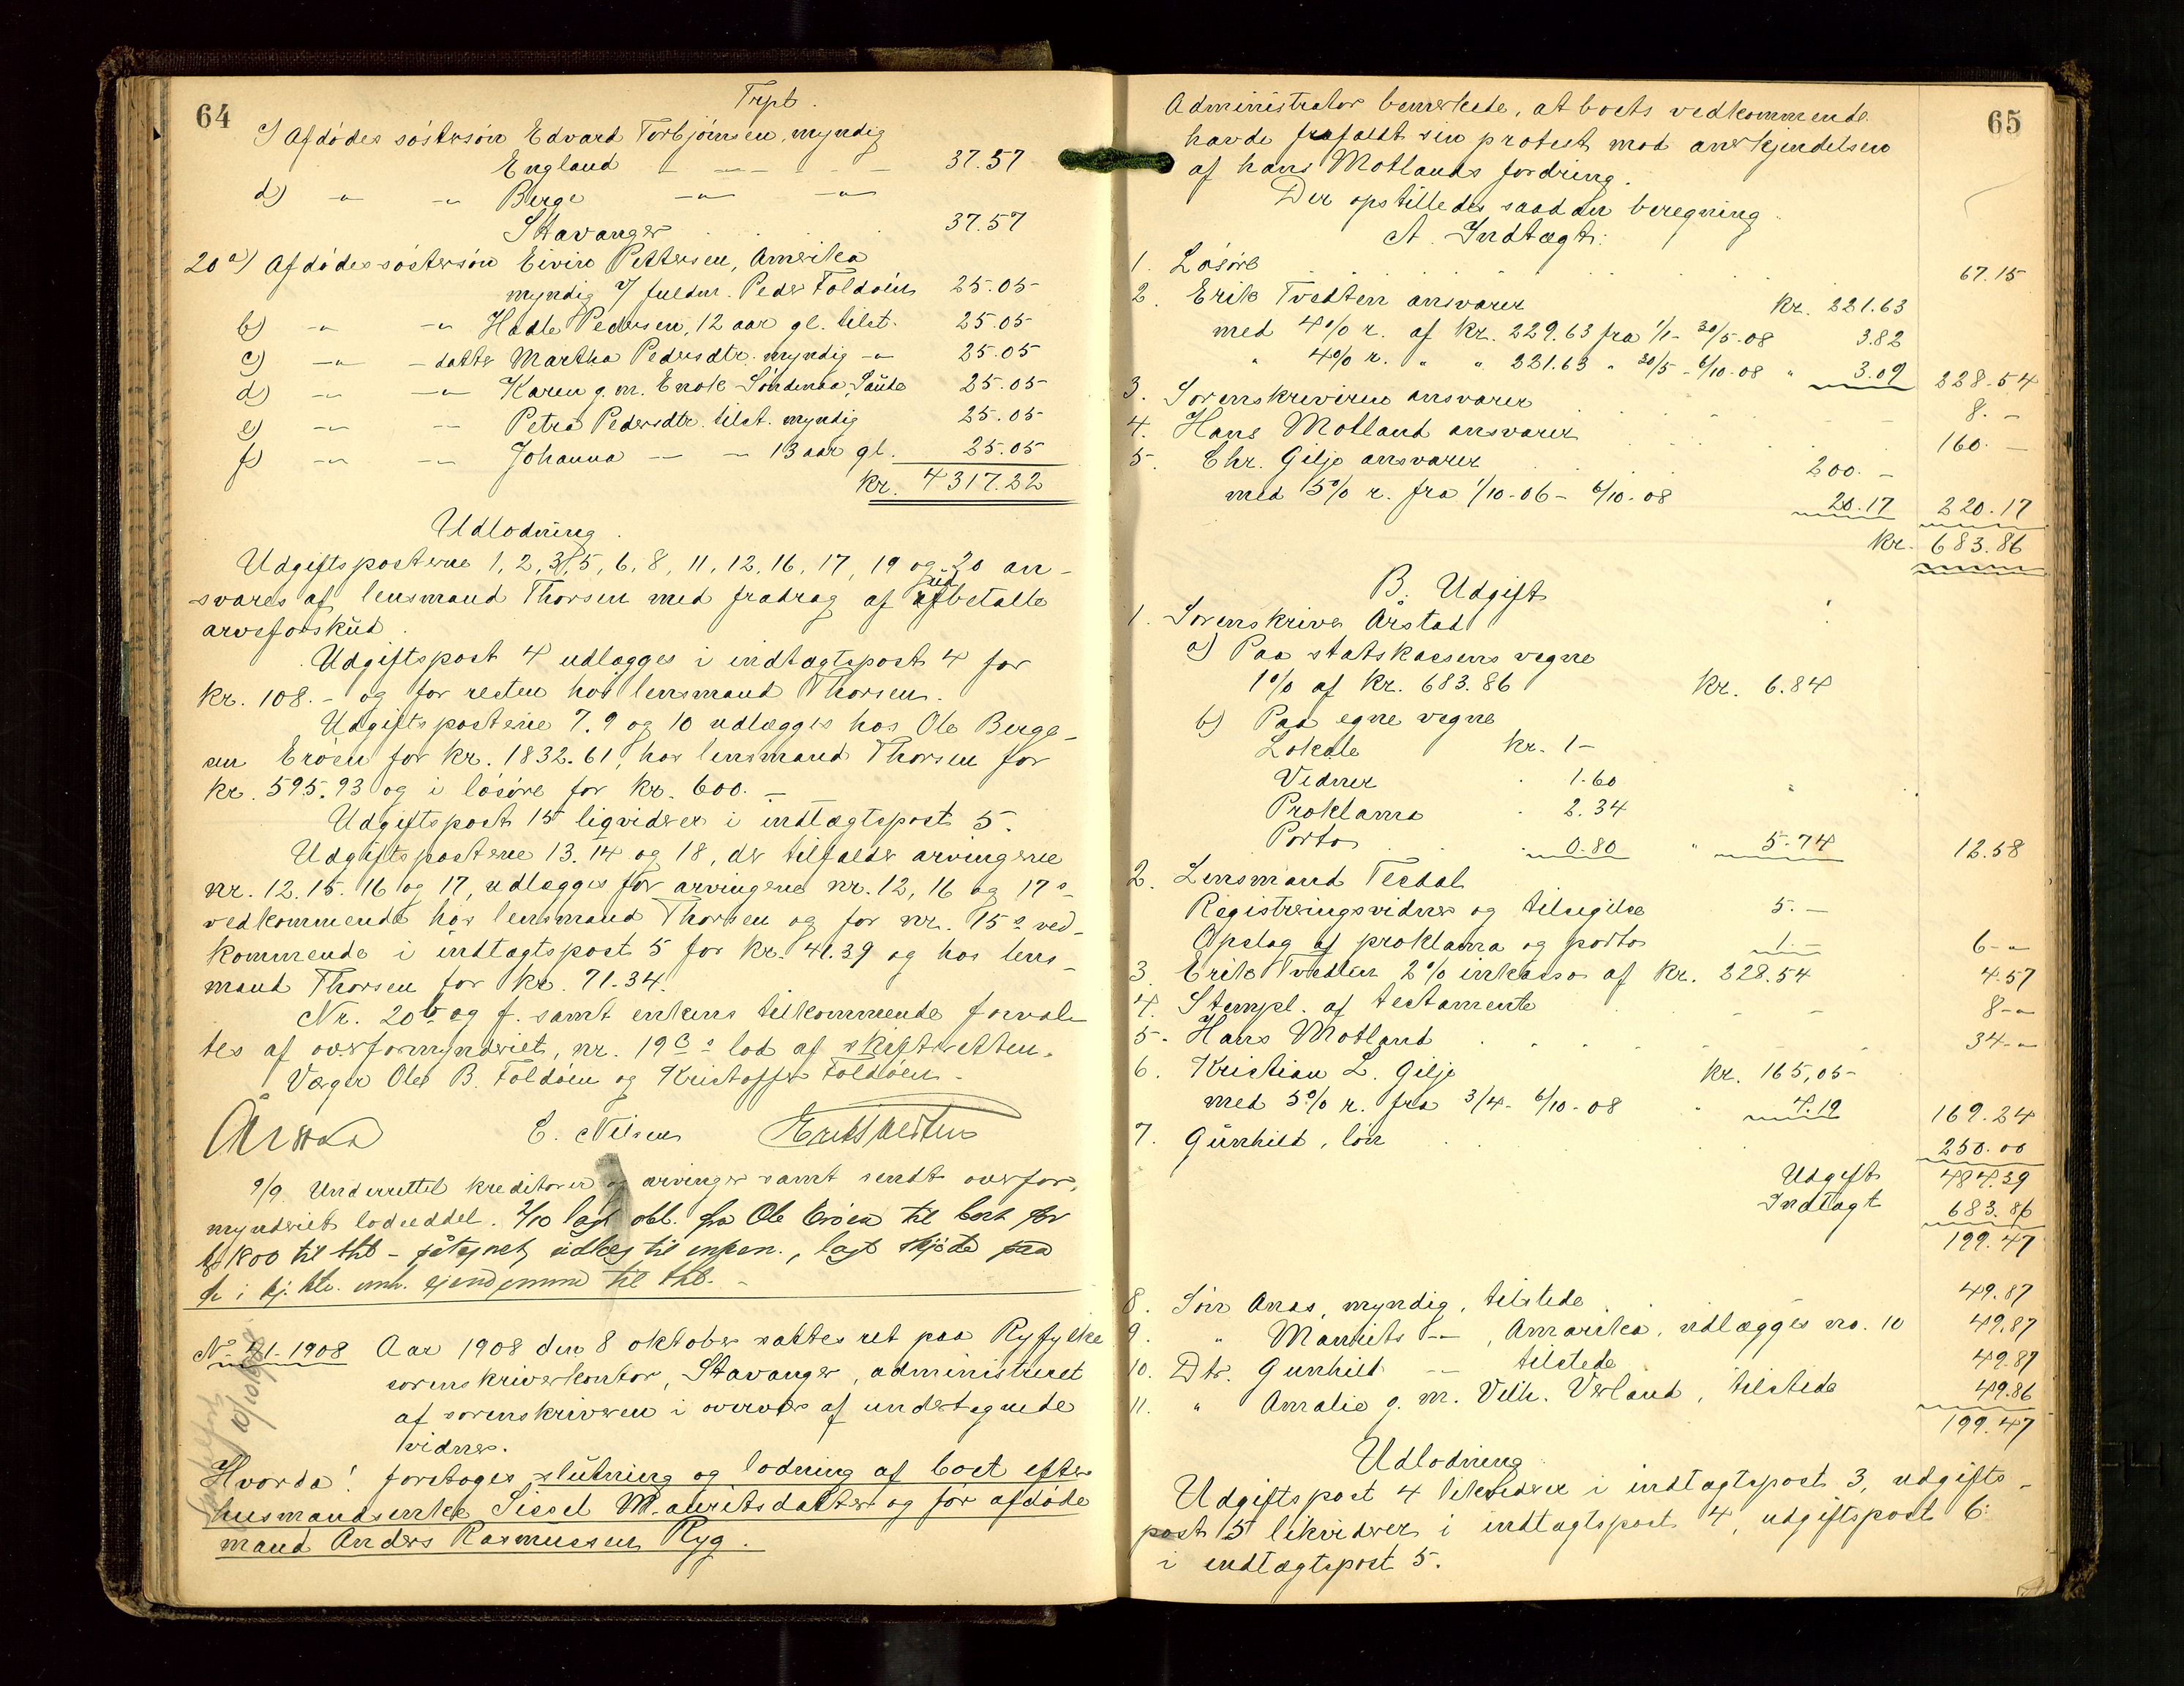 64
Trpt.
c) Afdødes søstersøn Edvard Torbjørnsen, myndig
England - - - - 37.57
d) -"- -"- Berge -"- -"-
Stavanger . . . 37.57
20 a) Afdødes søstersøn Eivin Pettersen, Amerika
myndig v/ fuldm. Peder Foldøen 25.05
b) -"- -"- Hadle Pedersen, 12 aar gl. tilst. 25.05
c) -"- - datter Martha Pedersdtr. myndig -"- 25.05
d) -"- -"- Karen g. m. Enok Søndenaa, Saude 25.05
e) -"- -"- Petra Pedersdtr. tilst. myndig 25.05
f) -"- -"- Johanna -"- -"- 13 aar gl. 25.05
Kr. 4317.22
Udlodning.
Udgiftsposterne 1, 2, 3, 5, 6, 8, 11, 12, 16, 17, 19 og 20 an-
svares af lensmand Thorsen med fradrag af udbetalte
arveforskud.
Udgiftspost 4 udlægges i indtægtspost 4 for
Kr. 108.- og for resten hos lensmand Thorsen.
Udgiftsposterne 7. 9 og 10 udlægges hos Ole Berge-
sen Erøen for Kr. 1832.61, hos lensmand Thorsen for
Kr. 595.93 og i løsøre for Kr. 600.-
Udgiftspost 15 ligviderer i indtægtspost 5.
Udgiftsposterne 13. 14 og 18, der tilfalder arvingerne
nr. 12. 15. 16 og 17, udlægges for arvingerne nr. 12, 16 og 17s
vedkommende hos lensmand Thorsen og for nr. 15s ved-
kommende i indtægtspost 5 for Kr. 41.39 og hos lens-
mand Thorsen for Kr. 71.34.
Nr. 20 b og f. samt enkens tilkommende forval-
tes af overformynderiet, nr. 19 c s lod af skifteretten.
Værger Ole B. Foldøen og Kristoffer Foldøen.
Årstad E. Nilsen Erik Tvedten
9/9 Underrettet kreditorer og arvinger samt sendt overfor-
mynderiet lodseddel. 2/10 lagt obl. fra Ole Erøen til boet for
kr 1800 til thl - påtegnet udlæg til enken., lagt skjøte paa
de i kj. ktr. omh. ejendomme til thl. -
No 41. 1908 Aar 1908 den 8 oktober sattes ret paa Ryfylke
sorenskriverkontor, Stavanger, administreret
af sorenskriveren i overvær af undertegnede
vidner.
Hvorda! foretoges slutning og lodning af boet efter
husmandsenke Sissel Mauritsdatter og før afdøde
mand Anders Rasmussen Ryg.
65
Administrator bemerkede, at boets vedkommende
havde frafaldt sin protest mod anerkjendelsen
af Hans Motlands fordring.
Der opstilledes saadan beregning
A. Indtægt:
1. Løsøre 67.15
2. Erik Tvedten ansvarer Kr. 221.63
med 4% r. af Kr. 229.63 fra 1/1 - 30/5-08 3.82
" 4% r. " " 221.63 " 30/5 - 6/10-08 " 3.09 228.54
3. Sorenskriveren ansvarer 8.-
4. Hans Motland ansvarer 160.-
5. Chr. Gilje ansvarer 200.-
med 5% r. fra 1/10-06 - 6/10-08 20.17 220.17
Kr. 683.86
B. Udgift
1. Sorenskriver Årstad
a) Paa statskassens vegne
1% af Kr. 683.86 Kr. 6.84
b) Paa egne vegne
Lokale Kr. 1-
Vidner . 1.60
Proklama . 2.34
Porto . . 0.80 " 5.74 12.58
2. Lensmand Tesdal
Registreringsvidner og tilsigelse 5.-
Opslag af proklama og porto 1.- 6-"
3. Erik Tvedten 2% inkasso af Kr. 228.54 4.57
4. Stempl. af testamente 8-"
5. Hans Motland 34-"
6. Kristian L. Gilje Kr. 165,05
med 5% r. fra 3/4 - 6/10-08 " 4.19 169.24
7. Gunhild, løn 250.00
Udgift 484.39
Indtægt 683.86
199.47
8. Søn Anas, myndig, tilstede 49.87
9. " Maurits -"-, Amerika, udlægges no. 10 49.87
10. Dtr. Gunhild -"- tilstede 49.87
11. " Amalie g. m. Vilh. Verland, tilstede 49.86
199.47
Udlodning
Udgiftspost 4 likviderer i indtægtspost 3, udgifts-
post 5 likviderer i indtægtspost 4, udgiftspost 6
i indtægtspost 5.